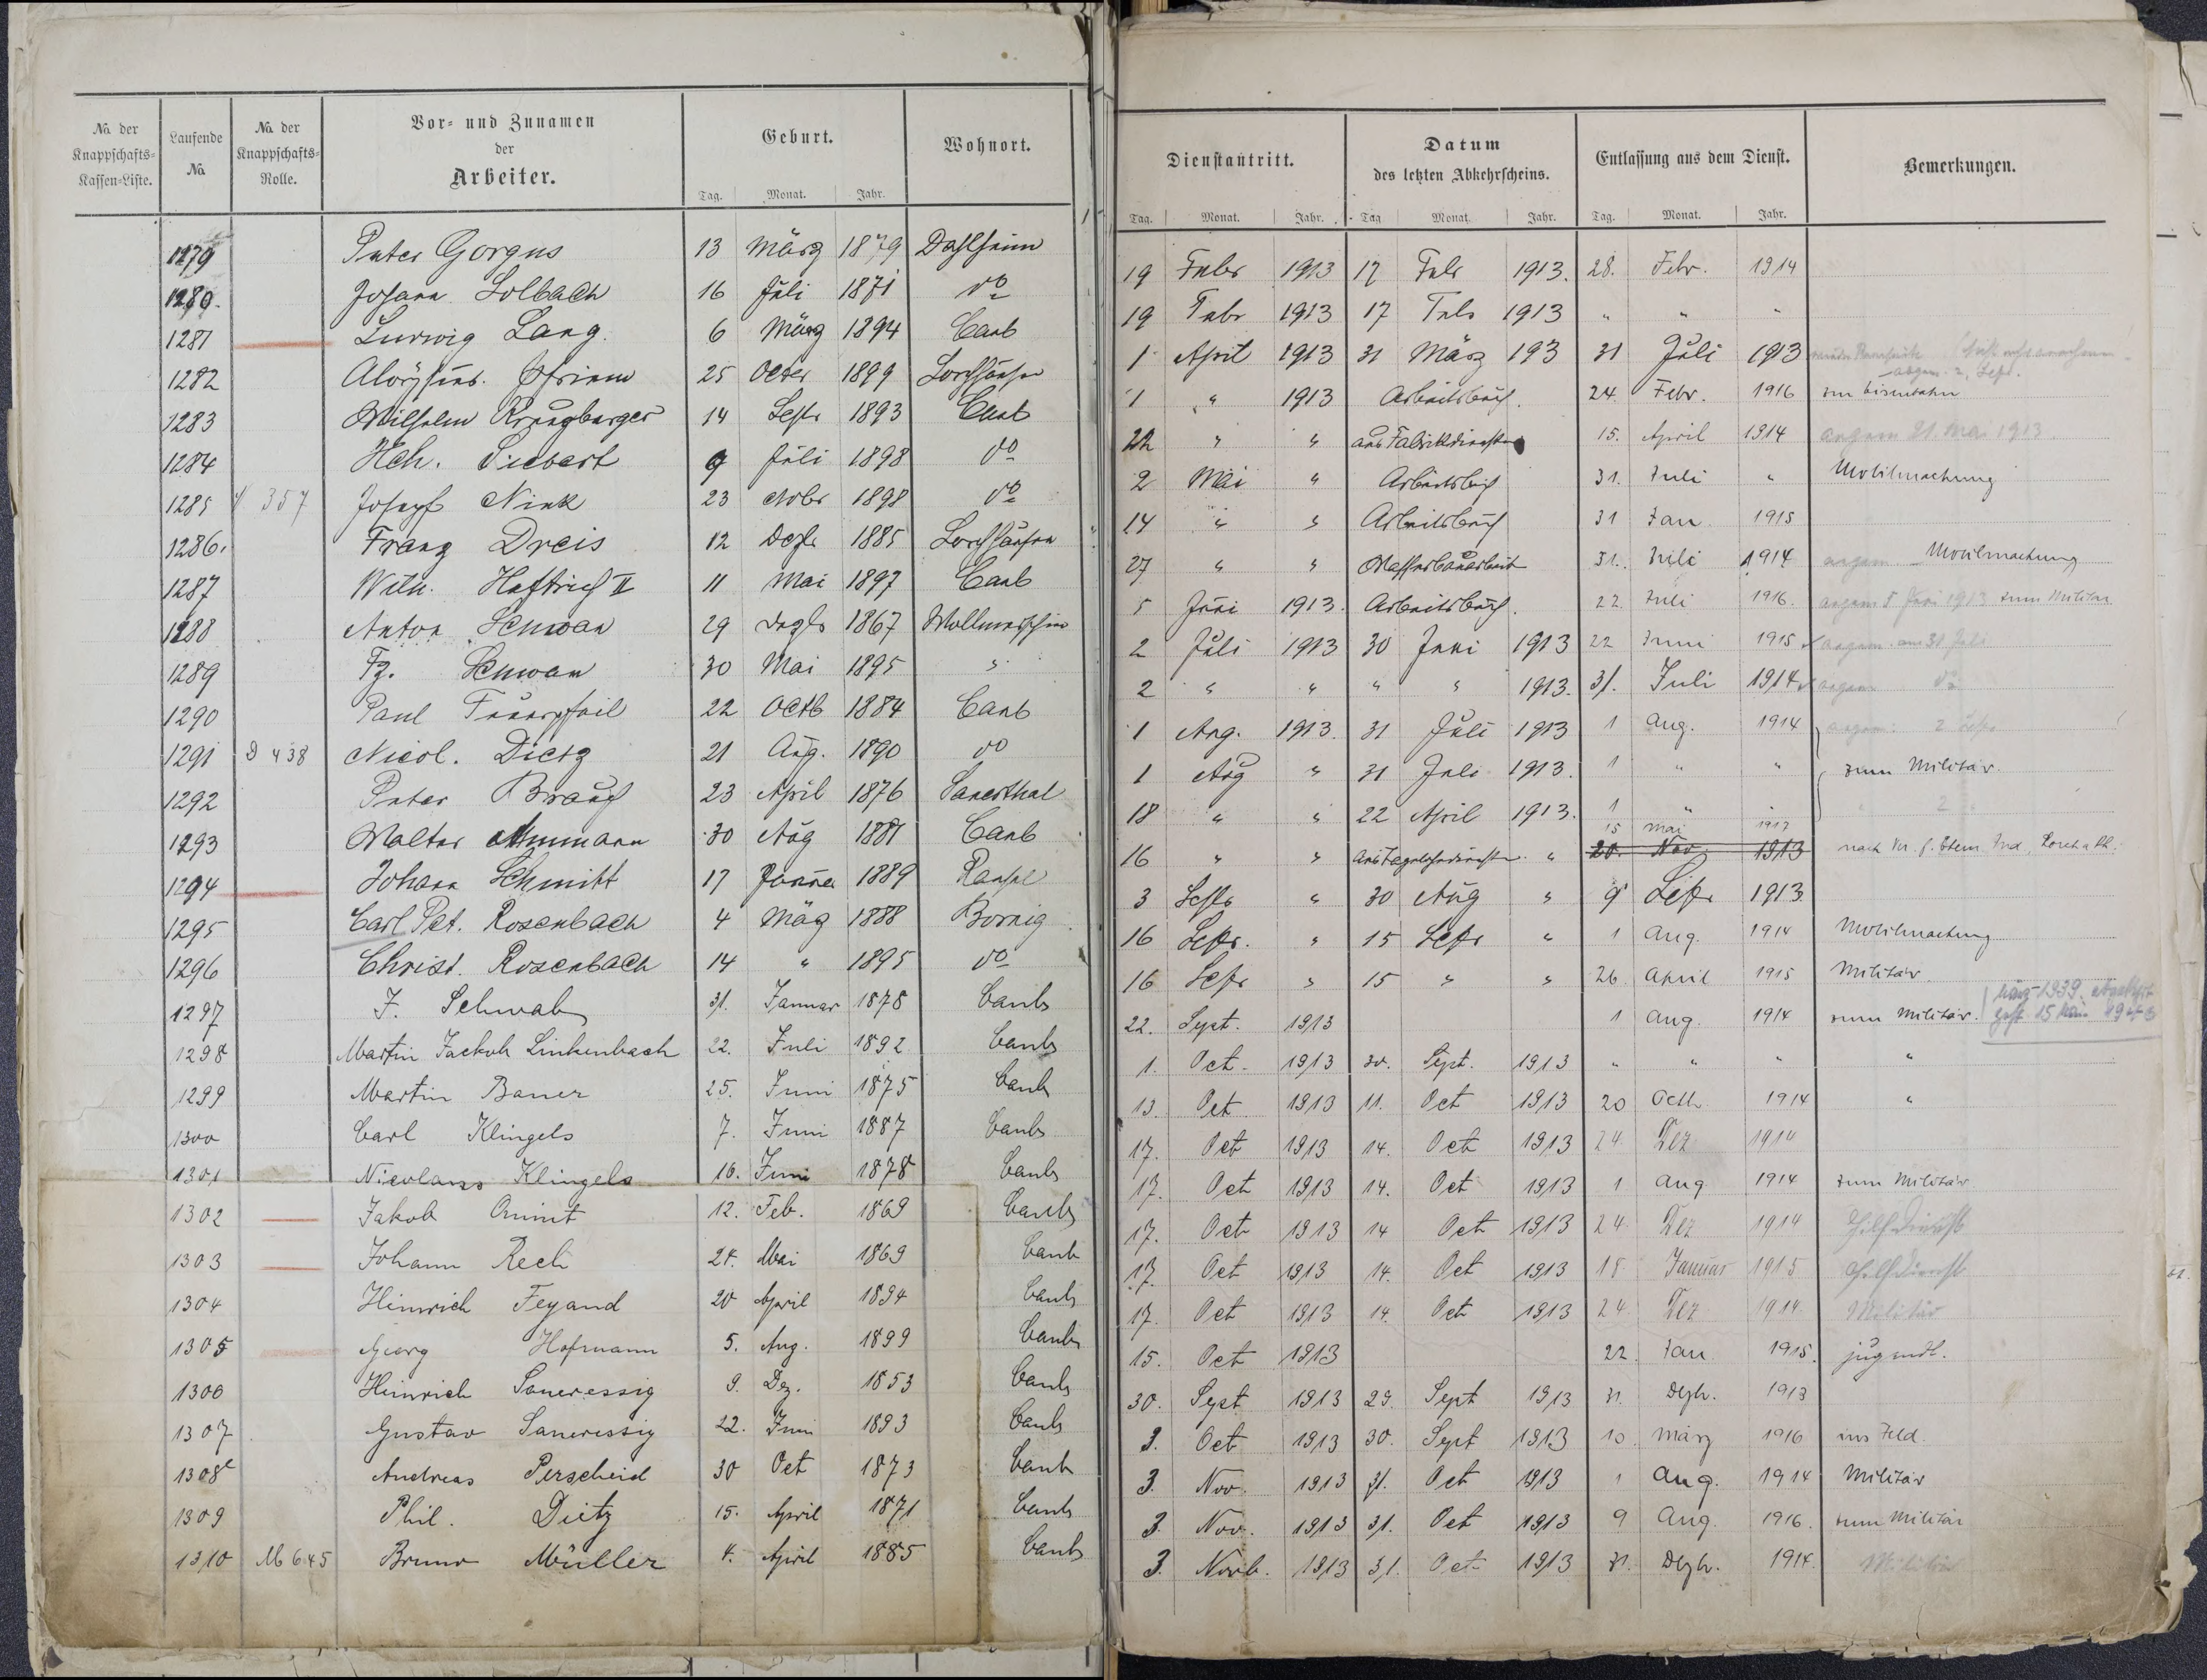 No. der Knappschafts-Kassen-Liste. Laufende No. No. der Knappschafts-Rolle. Vor- und Zunamen der Arbeiter. Geburt. Wohnort. Dienstantritt. Datum des letzten Abkehrscheins. Entlassung aus dem Dienst. Bemerkungen.
Tag. Monat. Jahr. Tag. Monat. Jahr. Tag. Monat. Jahr. Tag. Monat. Jahr.
1279 Peter Gorgus 13 März 1879 Dahlheim 19 Febr 1913 17 Febr 1913. 28. Febr. 1914
1280. Johann Solbach 16 Juli 1871 do 19 Febr 1913 17 Febr 1913 " " "
1281 Ludwig Lang. 6 März 1894 Caub 1 April 1913 31 März 193 31 Juli 1913
1282 Aloysius 25 Octer 1899 Lorchhausen 1 " 1913 Arbeitsbuch. 24. Febr. 1916 zur Eisenbahn
1283 Wilhelm 14 Septr 1893 Caub 22 " " aus Fabrikdiensten 15. April 1914 angem 21. Mai 1913
1284 Hch. Siebert 9 Juli 1898 do 2 Mai " Arbeitsbuch 31. Juli " Mobilmachung
1285 357 Joseph Nink 23 Nobr 1898 do 14 " " Arbeitsbuch 31 Jan 1915
1286. Franz Dreis 12 Dezbr 1885 Lorchhausen 27 " " Wasserbauarbeit 31. Juli 1914 angem Mobilmachung
1287 Wilh. Heftrich II 11 Mai 1897 Caub 5 Juni 1913. Arbeitsbuch. 22. Juli 1916. angem 5 Juni 1913 zum Militär
1288 Anton Schwan 29 Dezbr 1867 Wollmerschin 2 Juli 1913 30 Juni 1913 22 Juni 1915 angem. am 30 Juli
1289 Fz. Schwan 30 Mai 1895 " 2 " " " " 1913. 31. Juli 1914 angem do
1290 Paul Feuerpfeil 22 Octb 1884 Caub 1 Aug. 1913. 31 Juli 1913 1 Aug. 1914 angem: 2 Sept
1291 D 438 Nicol. Dietz 21 Aug. 1890 do 1 Aug " 31 Juli 1913. 1 " " zum Militär.
1292 Peter Brauch 23 April 1876 Sauerthal 18 " " 22 April 1913. 1 " " " 2 "
1293 Walter Ammann 30 Aug 1881 Caub 16 " " aus Tagelohndiensten. " 15 Mai 1917 20. Nov. 1913
1294 Johann Schmitt 17 Januar 1889 Ransel 3 Septr " 30 Aug " 9 Septr 1913
1295 Carl Pet. Rosenbach 4 März 1888 Bornig 16 Septr. " 15 Septr " 1 Aug. 1914 Mobilmachung
1296 Christ. Rosenbach 14 " 1895 do 16 Septr " 15 " " 26. April 1915 Militär
1297 J. Schwab 31. Januar 1878 Caub 22. Sept. 1913 1 Aug. 1914 zum Militär. März 1939 abgekehrt gest 15 Mai 1943
1298 Martin Jackob Linkenbach 22. Juli 1892 Caub 1. Oct. 1913 30. Sept. 1913 " " " "
1299 Martin Bauer 25. Juni 1875 Caub 13. Oct 1913 11. Oct 1913 20 Octb 1914 "
1300 Carl Klingels 7. Juni 1887 Caub 17. Oct 1913 14. Oct 1913 24. Dez 1914
1301 Nicolaus Klingels 16. Juni 1878 Caub 17. Oct 1913 14. Oct 1913 1 Aug 1914 zum Militär
1302 Jakob Ommt 12. Feb. 1869 Caub 17. Oct 1913 14 Oct 1913 24. Dez 1914 Hilfsdienst
1303 Johann Rech 24. Mai 1869 Caub 17. Oct 1913 14. Oct 1913 18 Januar 1915 Hilfsdienst
1304 Heinrich Feyand 20 April 1894 Caub 17. Oct 1913 14. Oct 1913 24. Dez 1914. Militär
1305 Georg Hofmann 5. Aug. 1899 Caub 15. Oct 1913 22. Jan 1915. jugendl.
1306 Heinrich Saueressig 9. Dez. 1853 Caub 30. Sept 1913 29. Sept 1913 31. Dezb. 1913
1307 Gustav Saueressig 22. Juni 1893 Caub 3. Oct 1913 30. Sept 1913 10. März 1916 ins Feld.
1308 Andreas Perscheid 30 Oct 1873 Caub 3. Nov. 1913 31. Oct 1913 1 Aug. 1914 Militär
1309 Phil. Dietz 15. April 1871 Caub 3. Nov. 1913 31. Oct 1913 9 Aug. 1916. zum Militär
1310 M 645 Bruno Müller 4. April 1885 Caub 3. Novb. 1913 31. Oct 1913 31. Dezb. 1914. Militär